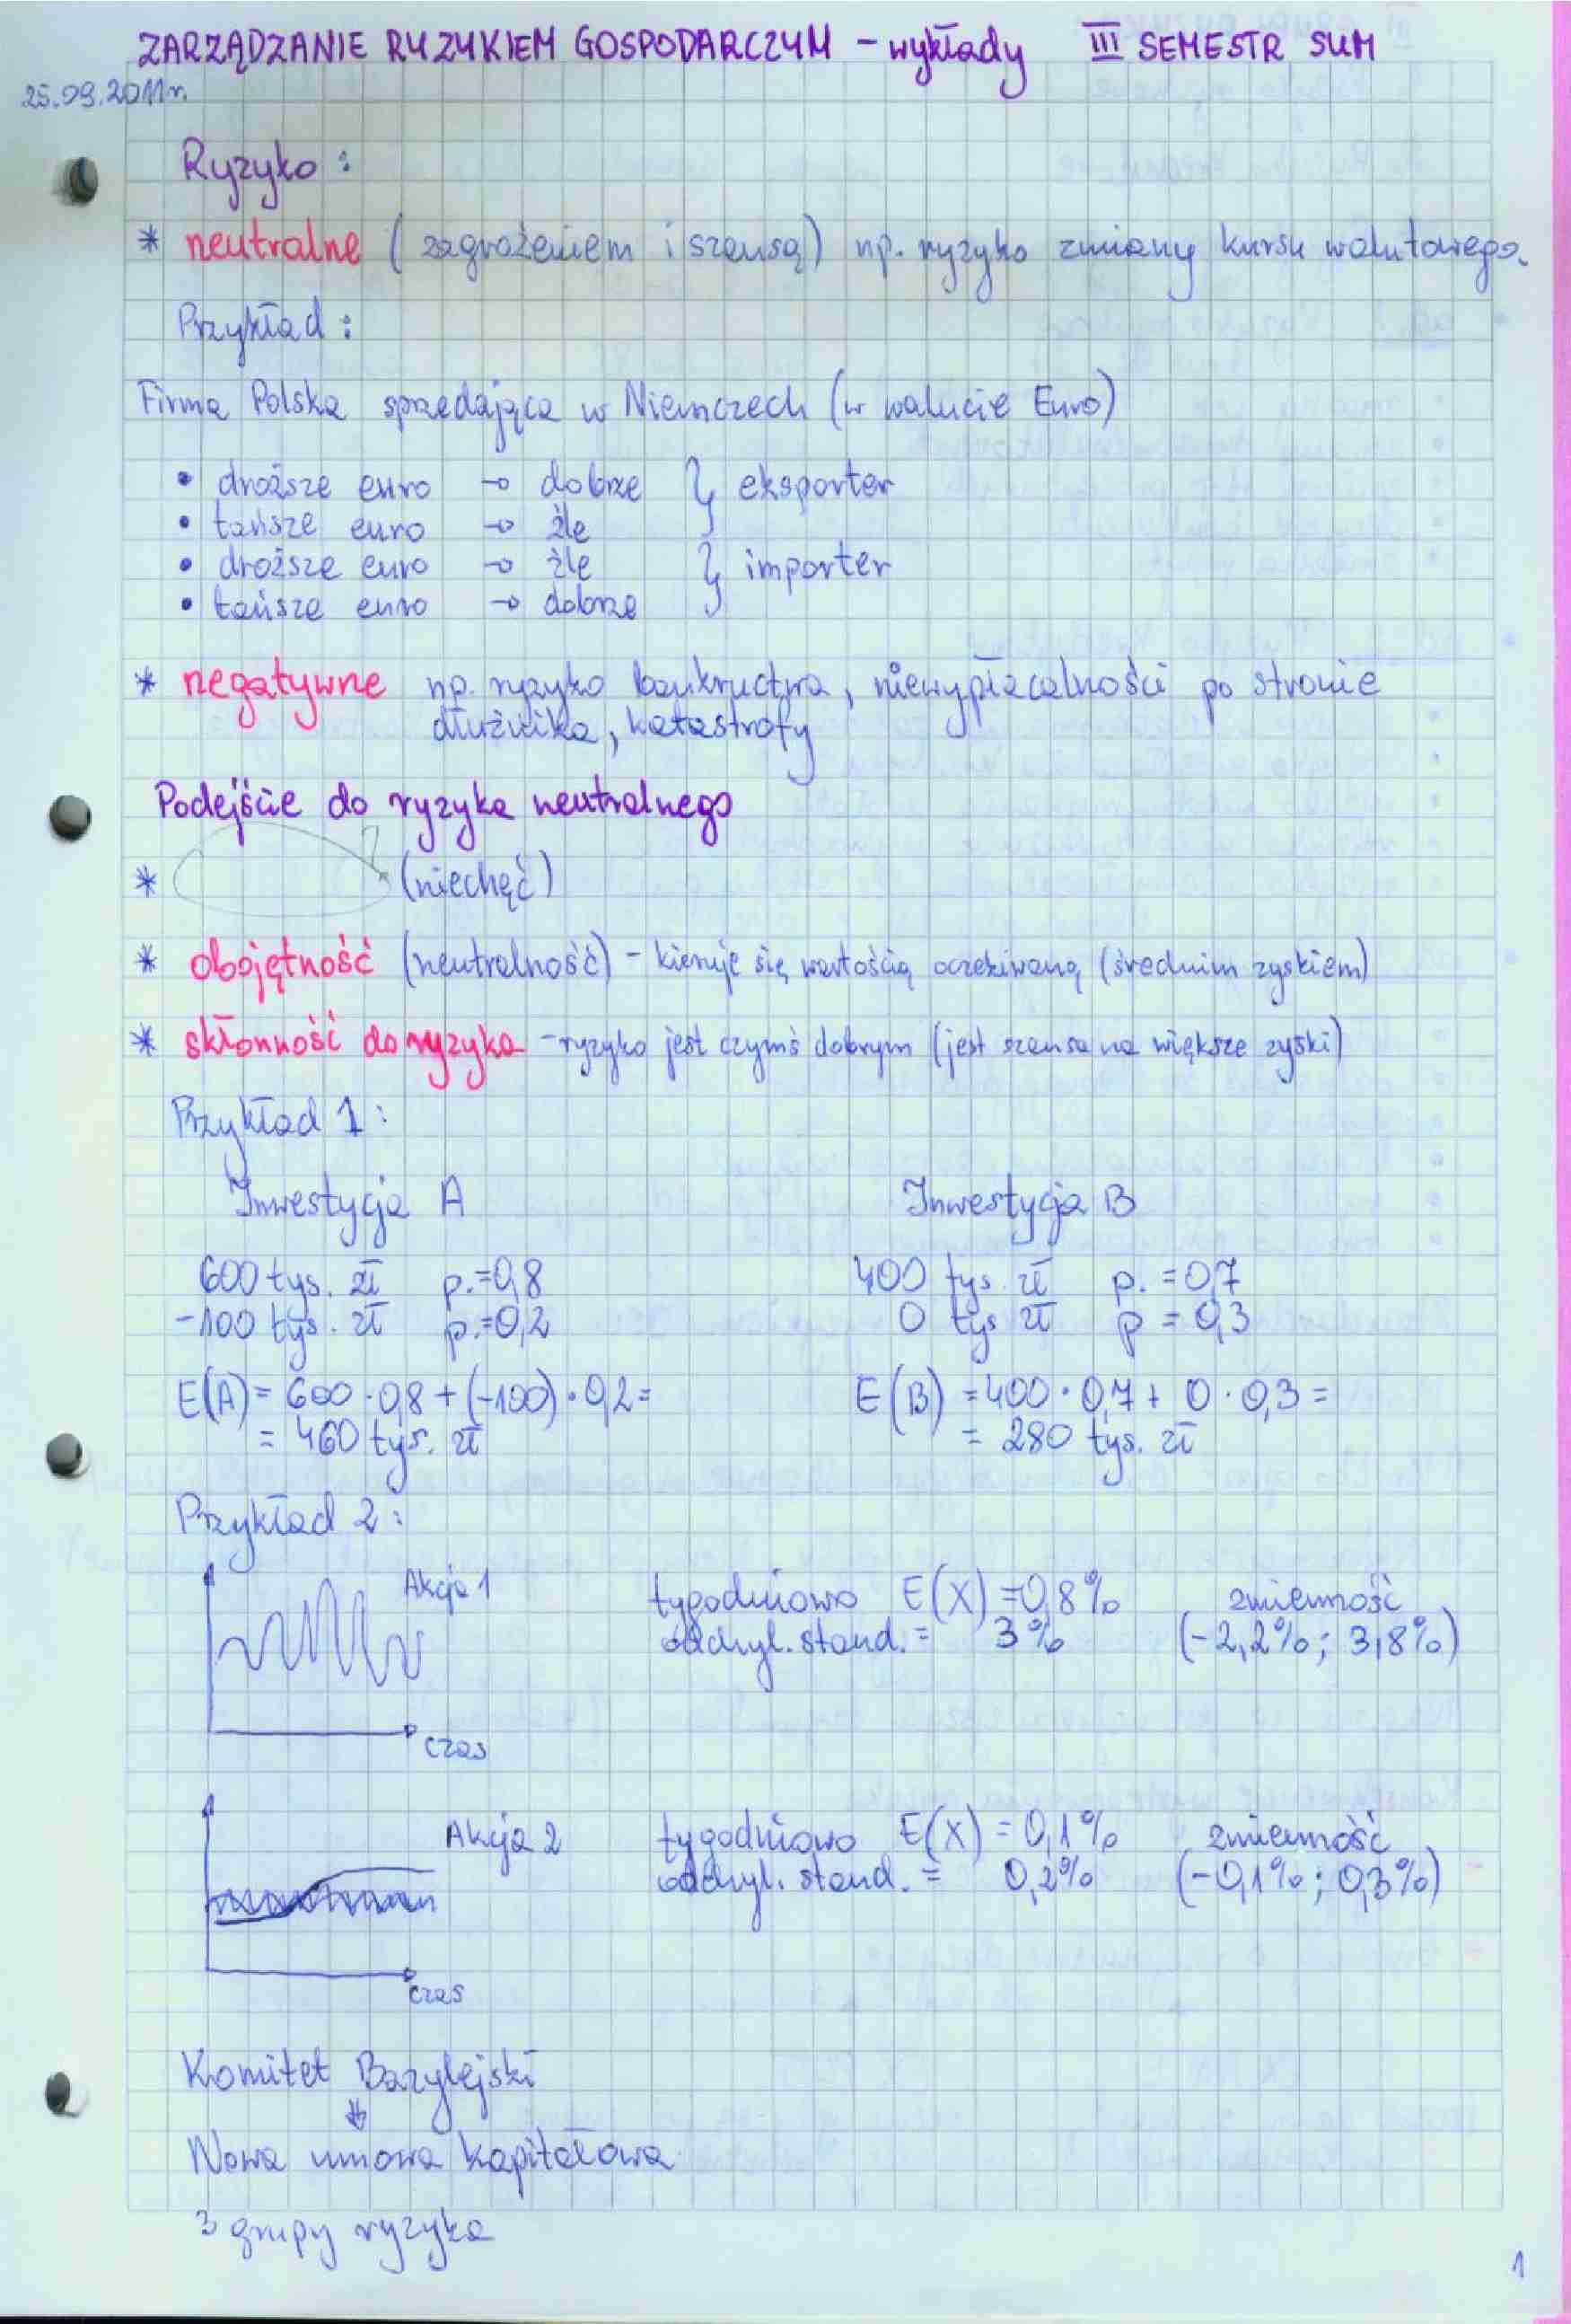 ZARZĄDZANIE RYZYKIEM GOSPODARCZYM - wykłady III SEMESTR SUM
25.09.2011r.
Ryzyko :
* neutralne ( zagrożeniem i szansą) np. ryzyko zmiany kursu walutowego.
Przykład :
Firma Polska sprzedająca w Niemczech (w walucie Euro)
• droższe euro → dobrze } eksporter
• tańsze euro → źle
• droższe euro → źle } importer
• tańsze euro → dobrze
* negatywne np. ryzyko bankructwa, niewypłacalności po stronie
dłużnika, katastrofy
Podejście do ryzyka neutralnego
* ? (niechęć)
* obojętność (neutralność) - kieruje się wartością oczekiwaną (średnim zyskiem)
* skłonność do ryzyka - ryzyko jest czymś dobrym (jest szansa na większe zyski)
Przykład 1 :
Inwestycja A Inwestycja B
600 tys. zł p.=0,8 400 tys. zł p. = 0,7
-100 tys. zł p.=0,2 0 tys zł p = 0,3
E(A) = 600 · 0,8 + (-100) · 0,2 = E(B) = 400 · 0,7 + 0 · 0,3 =
= 460 tys. zł = 280 tys. zł
Przykład 2 :
Akcja 1 tygodniowo E(X) = 0,8% zmienność
odchyl. stand. = 3% (-2,2% ; 3,8%)
czas
Akcja 2 tygodniowo E(X) = 0,1% zmienność
odchyl. stand. = 0,2% (-0,1% ; 0,3%)
czas
Komitet Bazylejski
↓
Nowa umowa kapitałowa
3 grupy ryzyka
1